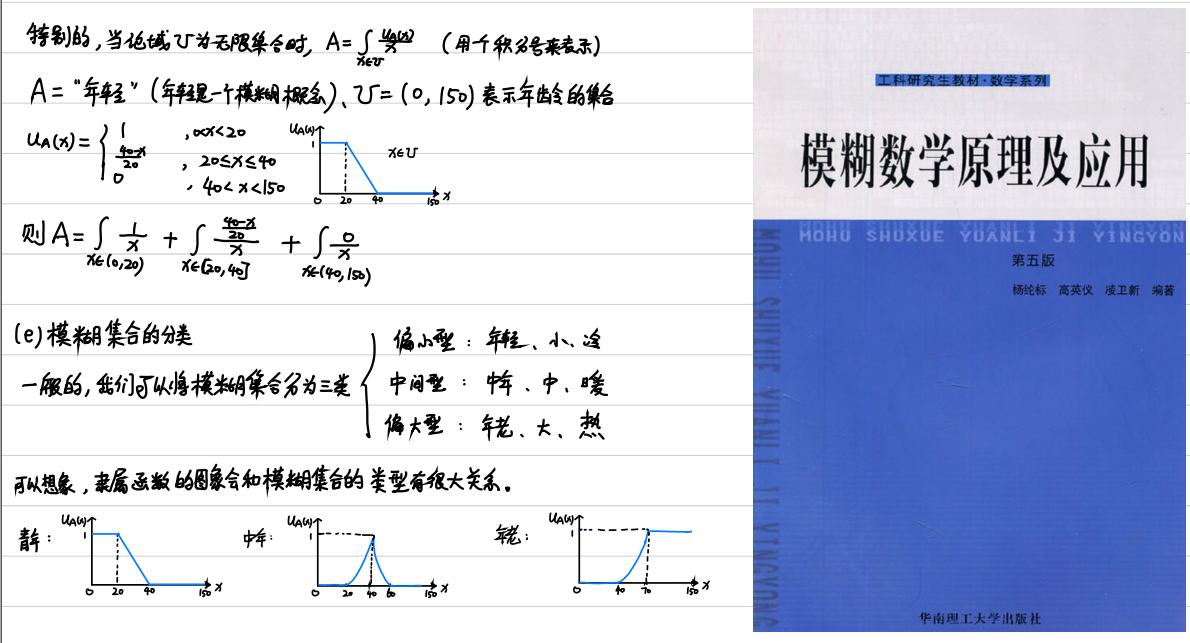 特别的，当论域U为无限集合时，A=∫x∈U uA(x)/x （用个积分号来表示）
A="年轻"（年轻是一个模糊概念）、U=(0,150)表示年龄的集合
uA(x)= { 1 ,0<x<20
(40-x)/20 , 20≤x≤40
0 , 40<x<150
uA(x) 1 0 20 40 150 x x∈U
则A=∫x∈(0,20) 1/x + ∫x∈[20,40] ((40-x)/20)/x + ∫x∈(40,150) 0/x
(e)模糊集合的分类
一般的，我们可以将模糊集合分为三类
偏小型：年轻、小、冷
中间型：中年、中、暖
偏大型：年老、大、热
可以想象，隶属函数的图象会和模糊集合的类型有很大关系。
青年： uA(x) 1 0 20 40 150 x
中年： uA(x) 1 0 20 40 60 150 x
年老： uA(x) 1 0 40 70 150 x
工科研究生教材·数学系列
模糊数学原理及应用
MOHU SHUXUE YUANLI JI YINGYON
第五版
杨纶标 高英仪 凌卫新 编著
MOHU SHUXUE YUANLI JI YINGYONG
华南理工大学出版社